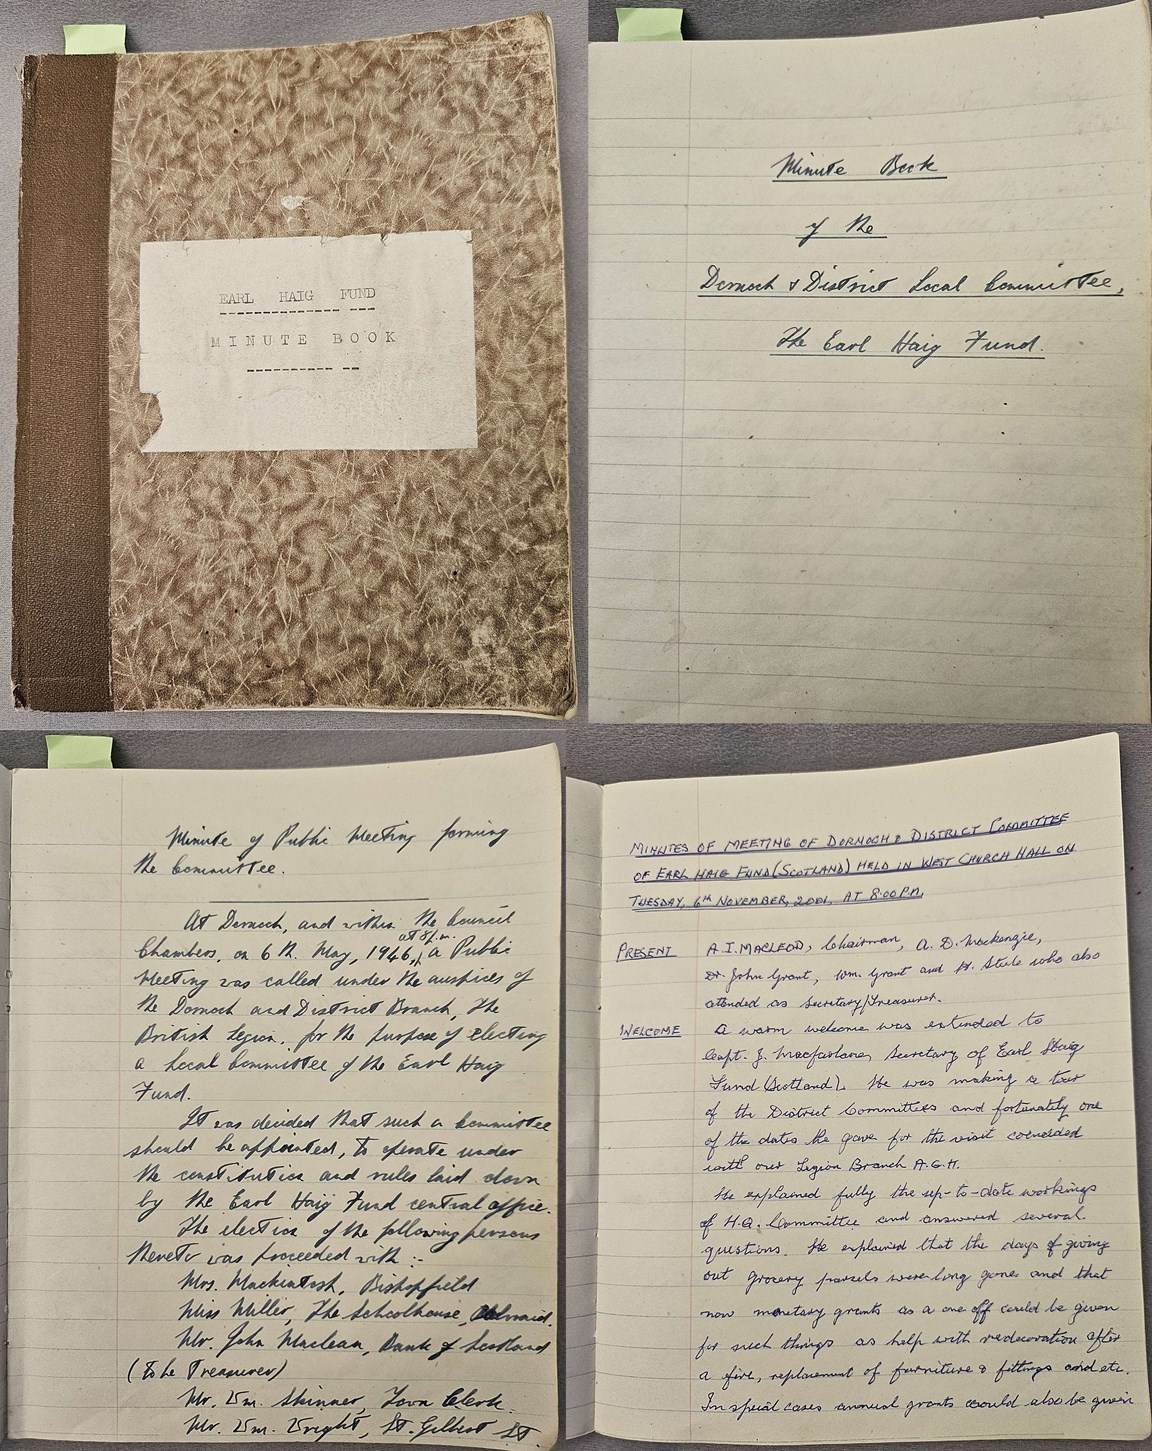 EARL HAIG FUND
MINUTE BOOK
Minute Book
of the
Dornoch & District Local Committee,
The Earl Haig Fund.
Minute of Public Meeting forming
the Committee.
At Dornoch, and within the Council
at 8 p.m.
Chambers, on 6th. May, 1946, a Public
Meeting was called under the auspices of
the Dornoch and District Branch, The
British Legion, for the purpose of electing
a Local Committee of the Earl Haig
Fund.
It was decided that such a committee
should be appointed, to operate under
the constitution and rules laid down
by the Earl Haig Fund central office.
The election of the following persons
thereto was proceeded with :-
Mrs. Mackintosh, Bishopfield
Miss Miller, The Schoolhouse,
Mr. John Maclean, Bank of Scotland
(to be Treasurer)
Mr. Wm. Skinner, Town Clerk.
Mr. Wm. Wright, St. Gilbert St.
MINUTES OF MEETING OF DORNOCH & DISTRICT COMMITTEE
OF EARL HAIG FUND (SCOTLAND) HELD IN WEST CHURCH HALL ON
TUESDAY, 6th NOVEMBER, 2001, AT 8:00 P.M.
PRESENT A.I. MACLEOD, Chairman, A. D. Mackenzie,
Dr. John Grant, Wm. Grant and H. Steele who also
attended as Secretary/Treasurer.
WELCOME A warm welcome was extended to
Capt. J. Macfarlane, Secretary of Earl Haig
Fund (Scotland). He was making a tour
of the District Committees and fortunately one
of the dates he gave for the visit coincided
with our Legion Branch A.G.M.
He explained fully the up-to-date workings
of H.Q. Committee and answered several
questions. He explained that the days of giving
out grocery parcels were long gone and that
now monetary grants as a one off could be given
for such things as help with redecoration after
a fire, replacement of furniture & fittings and etc.
In special cases annual grants could also be given